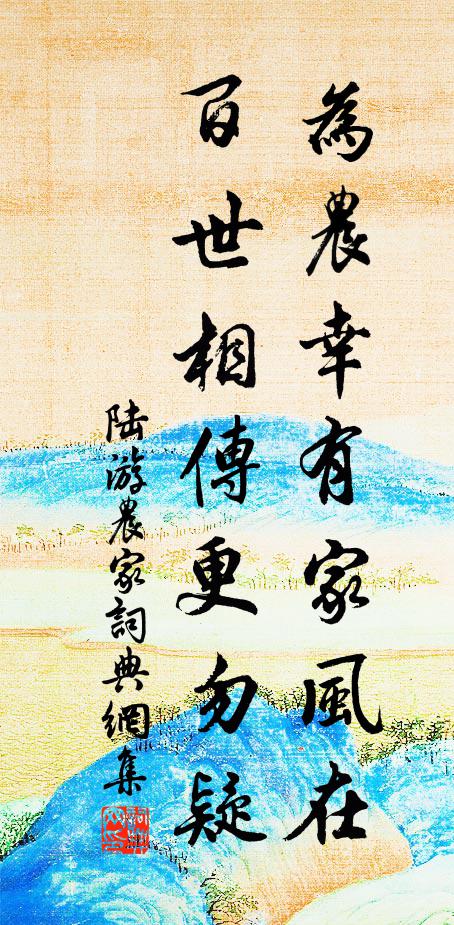 為農幸有家風在
百世相傳更勿疑
陸游農家詞典網集